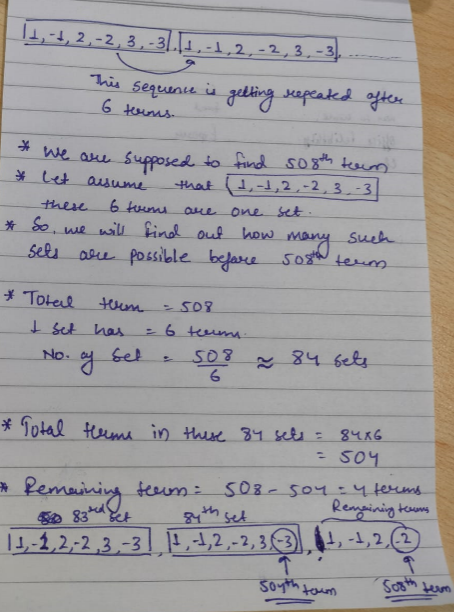 1, -1, 2, -2, 3, -3, 1, -1, 2, -2, 3, -3, .....
This sequence is getting repeated after
6 terms.
* We are supposed to find 508th term
* Let assume that 1, -1, 2, -2, 3, -3
these 6 terms are one set.
* So, we will find out how many such
sets are possible before 508th term
* Total term = 508
1 set has = 6 terms.
No. of Set = 508/6 ≈ 84 sets
* Total terms in these 84 sets = 84x6
= 504
* Remaining term = 508 - 504 = 4 terms
83rd set 84th set Remaining terms
1, -1, 2, -2, 3, -3, 1, -1, 2, -2, 3, -3, 1, -1, 2, -2
504th term 508th term